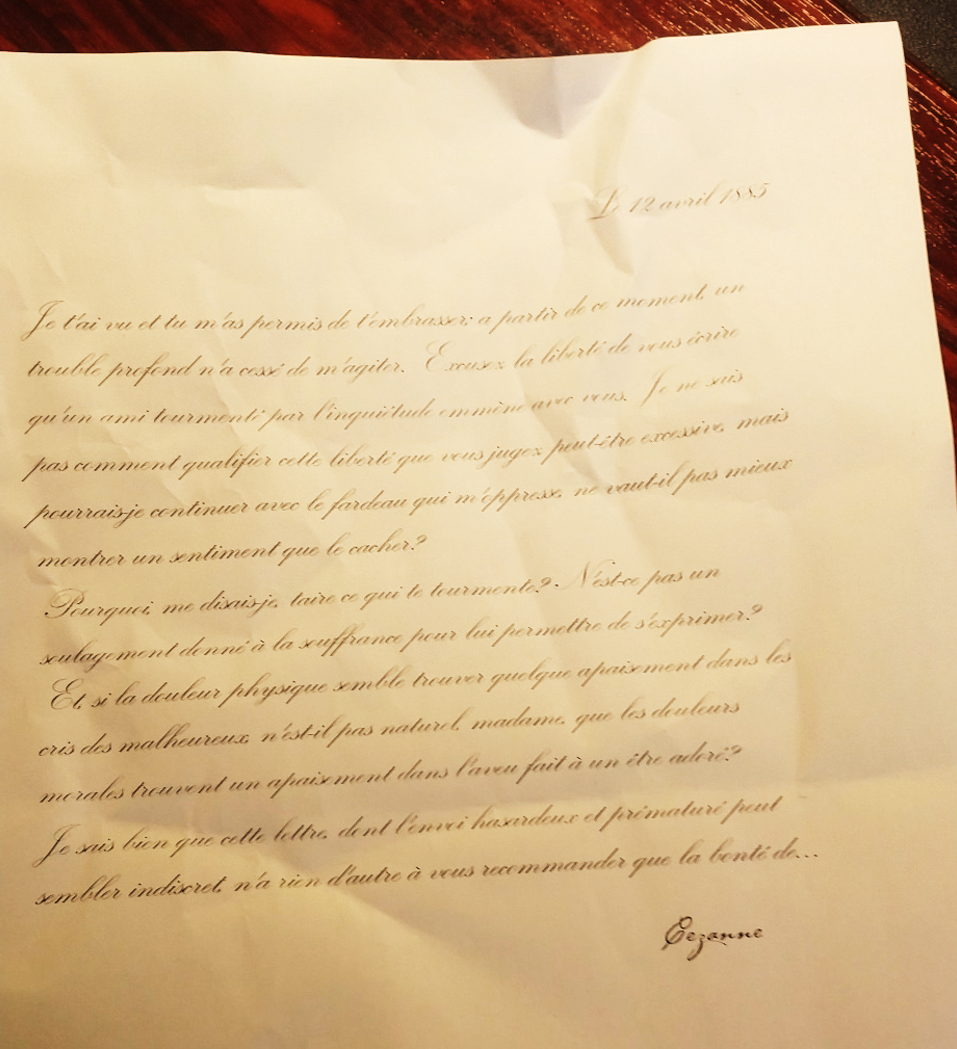 Le 12 avril 1885
Je t'ai vu et tu m'as permis de t'embrasser; a partir de ce moment, un
trouble profond n'a cessé de m'agiter. Excusez la liberté de vous écrire
qu'un ami tourmenté par l'inquiétude emmène avec vous. Je ne sais
pas comment qualifier cette liberté que vous jugez peut-être excessive, mais
pourrais-je continuer avec le fardeau qui m'oppresse, ne vaut-il pas mieux
montrer un sentiment que le cacher?
Pourquoi, me disais-je, taire ce qui te tourmente? N'est-ce pas un
soulagement donné à la souffrance pour lui permettre de s'exprimer?
Et, si la douleur physique semble trouver quelque apaisement dans les
cris des malheureux, n'est-il pas naturel, madame, que les douleurs
morales trouvent un apaisement dans l'aveu fait à un être adoré?
Je sais bien que cette lettre, dont l'envoi hasardeux et prématuré peut
sembler indiscret, n'a rien d'autre à vous recommander que la bonté de...
Cezanne